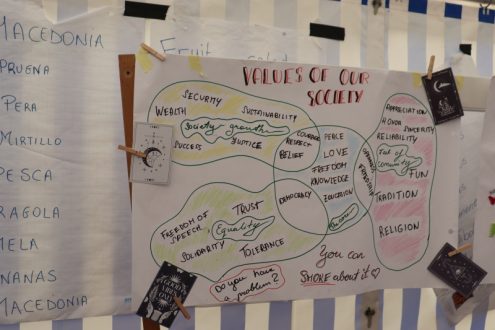 MACEDONIA
PRUGNA
PERA
MIRTILLO
PESCA
FRAGOLA
MELA
ANANAS
MACEDONIA
Fruit salad
VALUES OF OUR
SOCIETY
SECURITY
WEALTH
SUSTAINABILITY
Society growth
SUCCESS
JUSTICE
COURAGE
RESPECT
BELIEF
PEACE
LOVE
FREEDOM
KNOWLEDGE
EDUCATION
DEMOCRACY
FRIENDSHIP
APPRECIATION
HONOR
SINCERITY
RELIABILITY
community
FUN
TRADITION
RELIGION
TRUST
FREEDOM OF
SPEECH
Equality
SOLIDARITY
TOLERANCE
Do you have
a problem?
You can
SMOKE about it